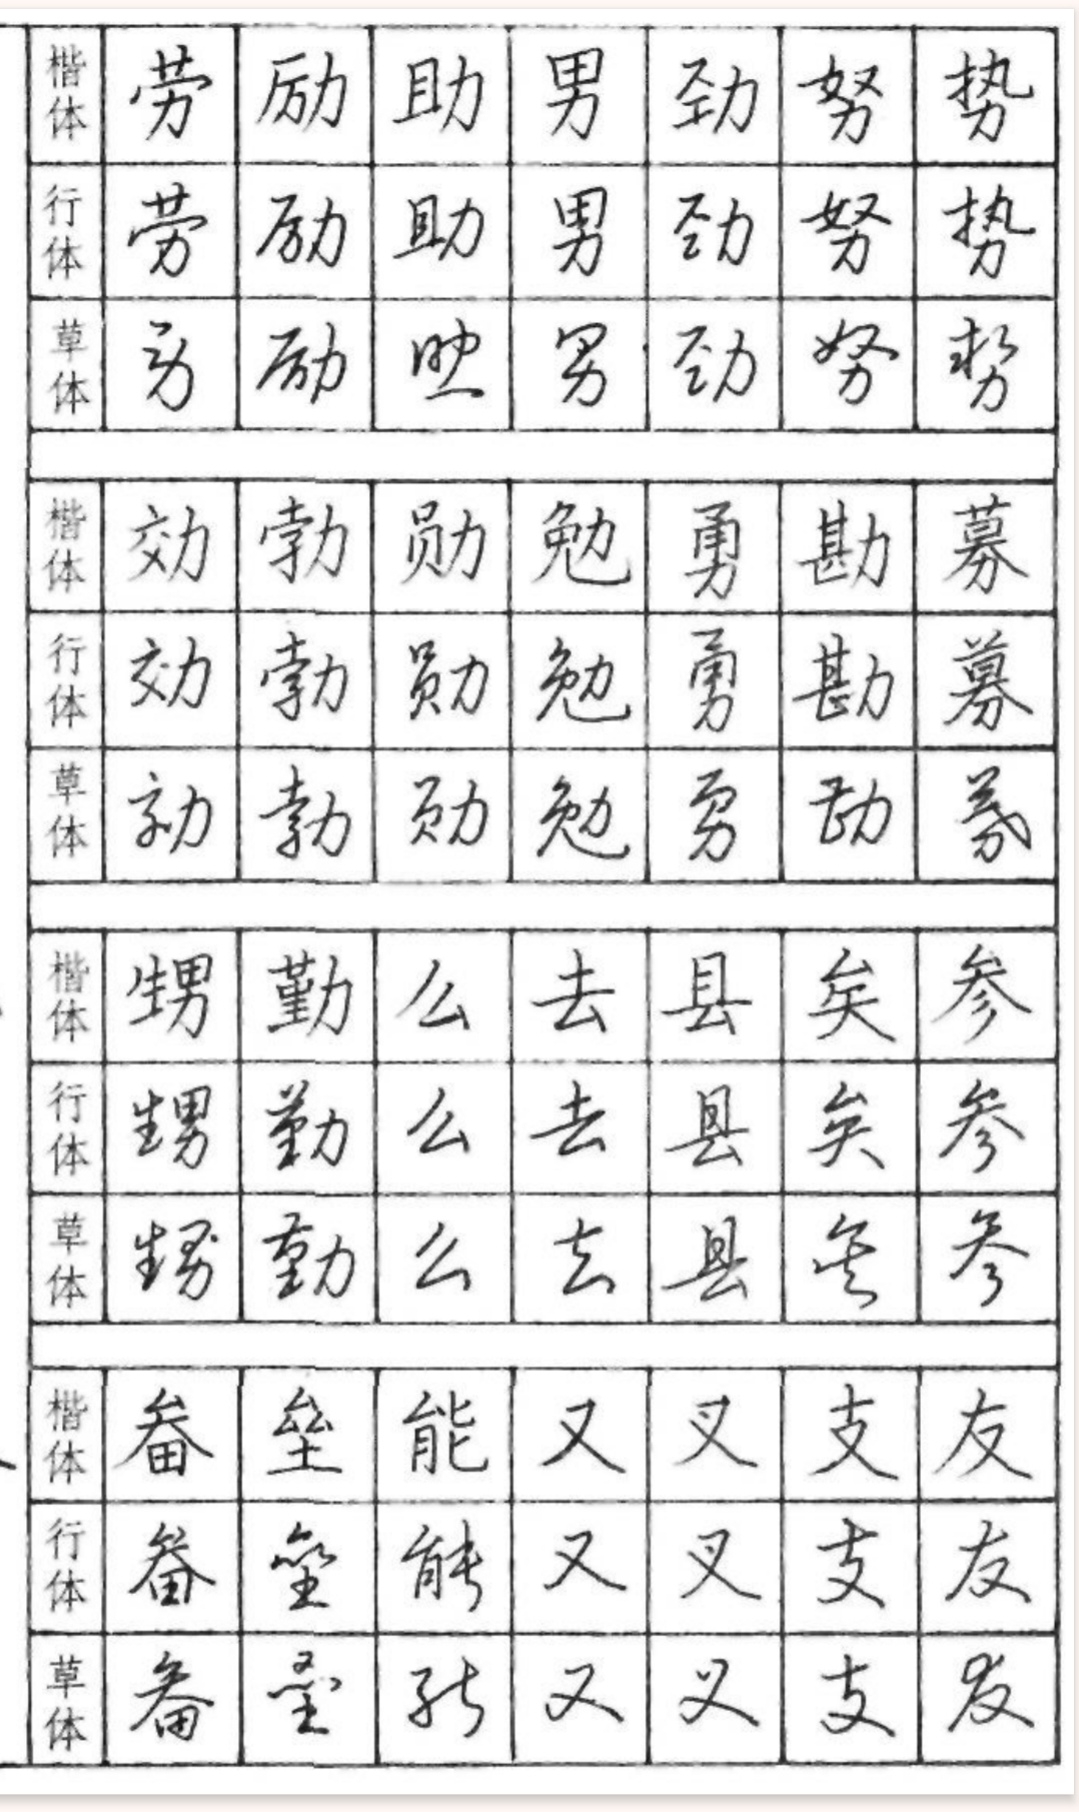 楷体 劳 励 助 男 劲 努 势
行体 劳 励 助 男 劲 努 势
草体 劳 励 助 男 劲 努 势
楷体 効 勃 勋 勉 勇 勘 募
行体 効 勃 勋 勉 勇 勘 募
草体 効 勃 勋 勉 勇 勘 募
楷体 甥 勤 么 去 县 矣 参
行体 甥 勤 么 去 县 矣 参
草体 甥 勤 么 去 县 矣 参
楷体 畚 垒 能 又 叉 支 友
行体 畚 垒 能 又 叉 支 友
草体 畚 垒 能 又 叉 支 友